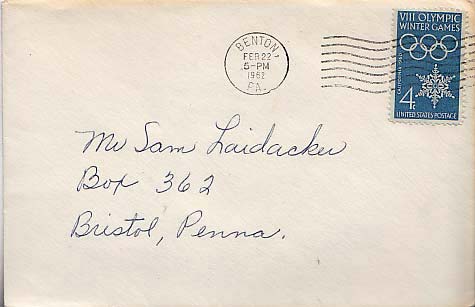 BENTON,
FEB 22
5-PM
1962
PA.
VIII OLYMPIC
WINTER GAMES
CALIFORNIA 1960
4¢
UNITED STATES POSTAGE
Mr Sam Laidacker
Box 362
Bristol, Penna.